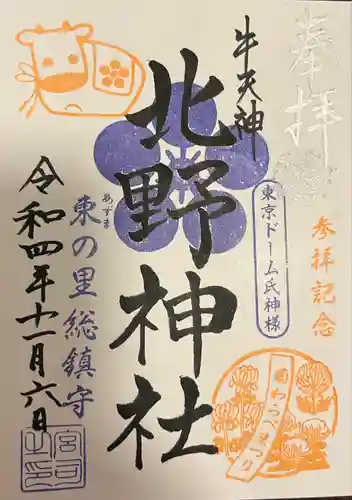 奉拝
牛天神
北野神社
東京ドーム氏神様
参拝記念
わらべまつり
あずま
東の里総鎮守
令和四年十一月六日